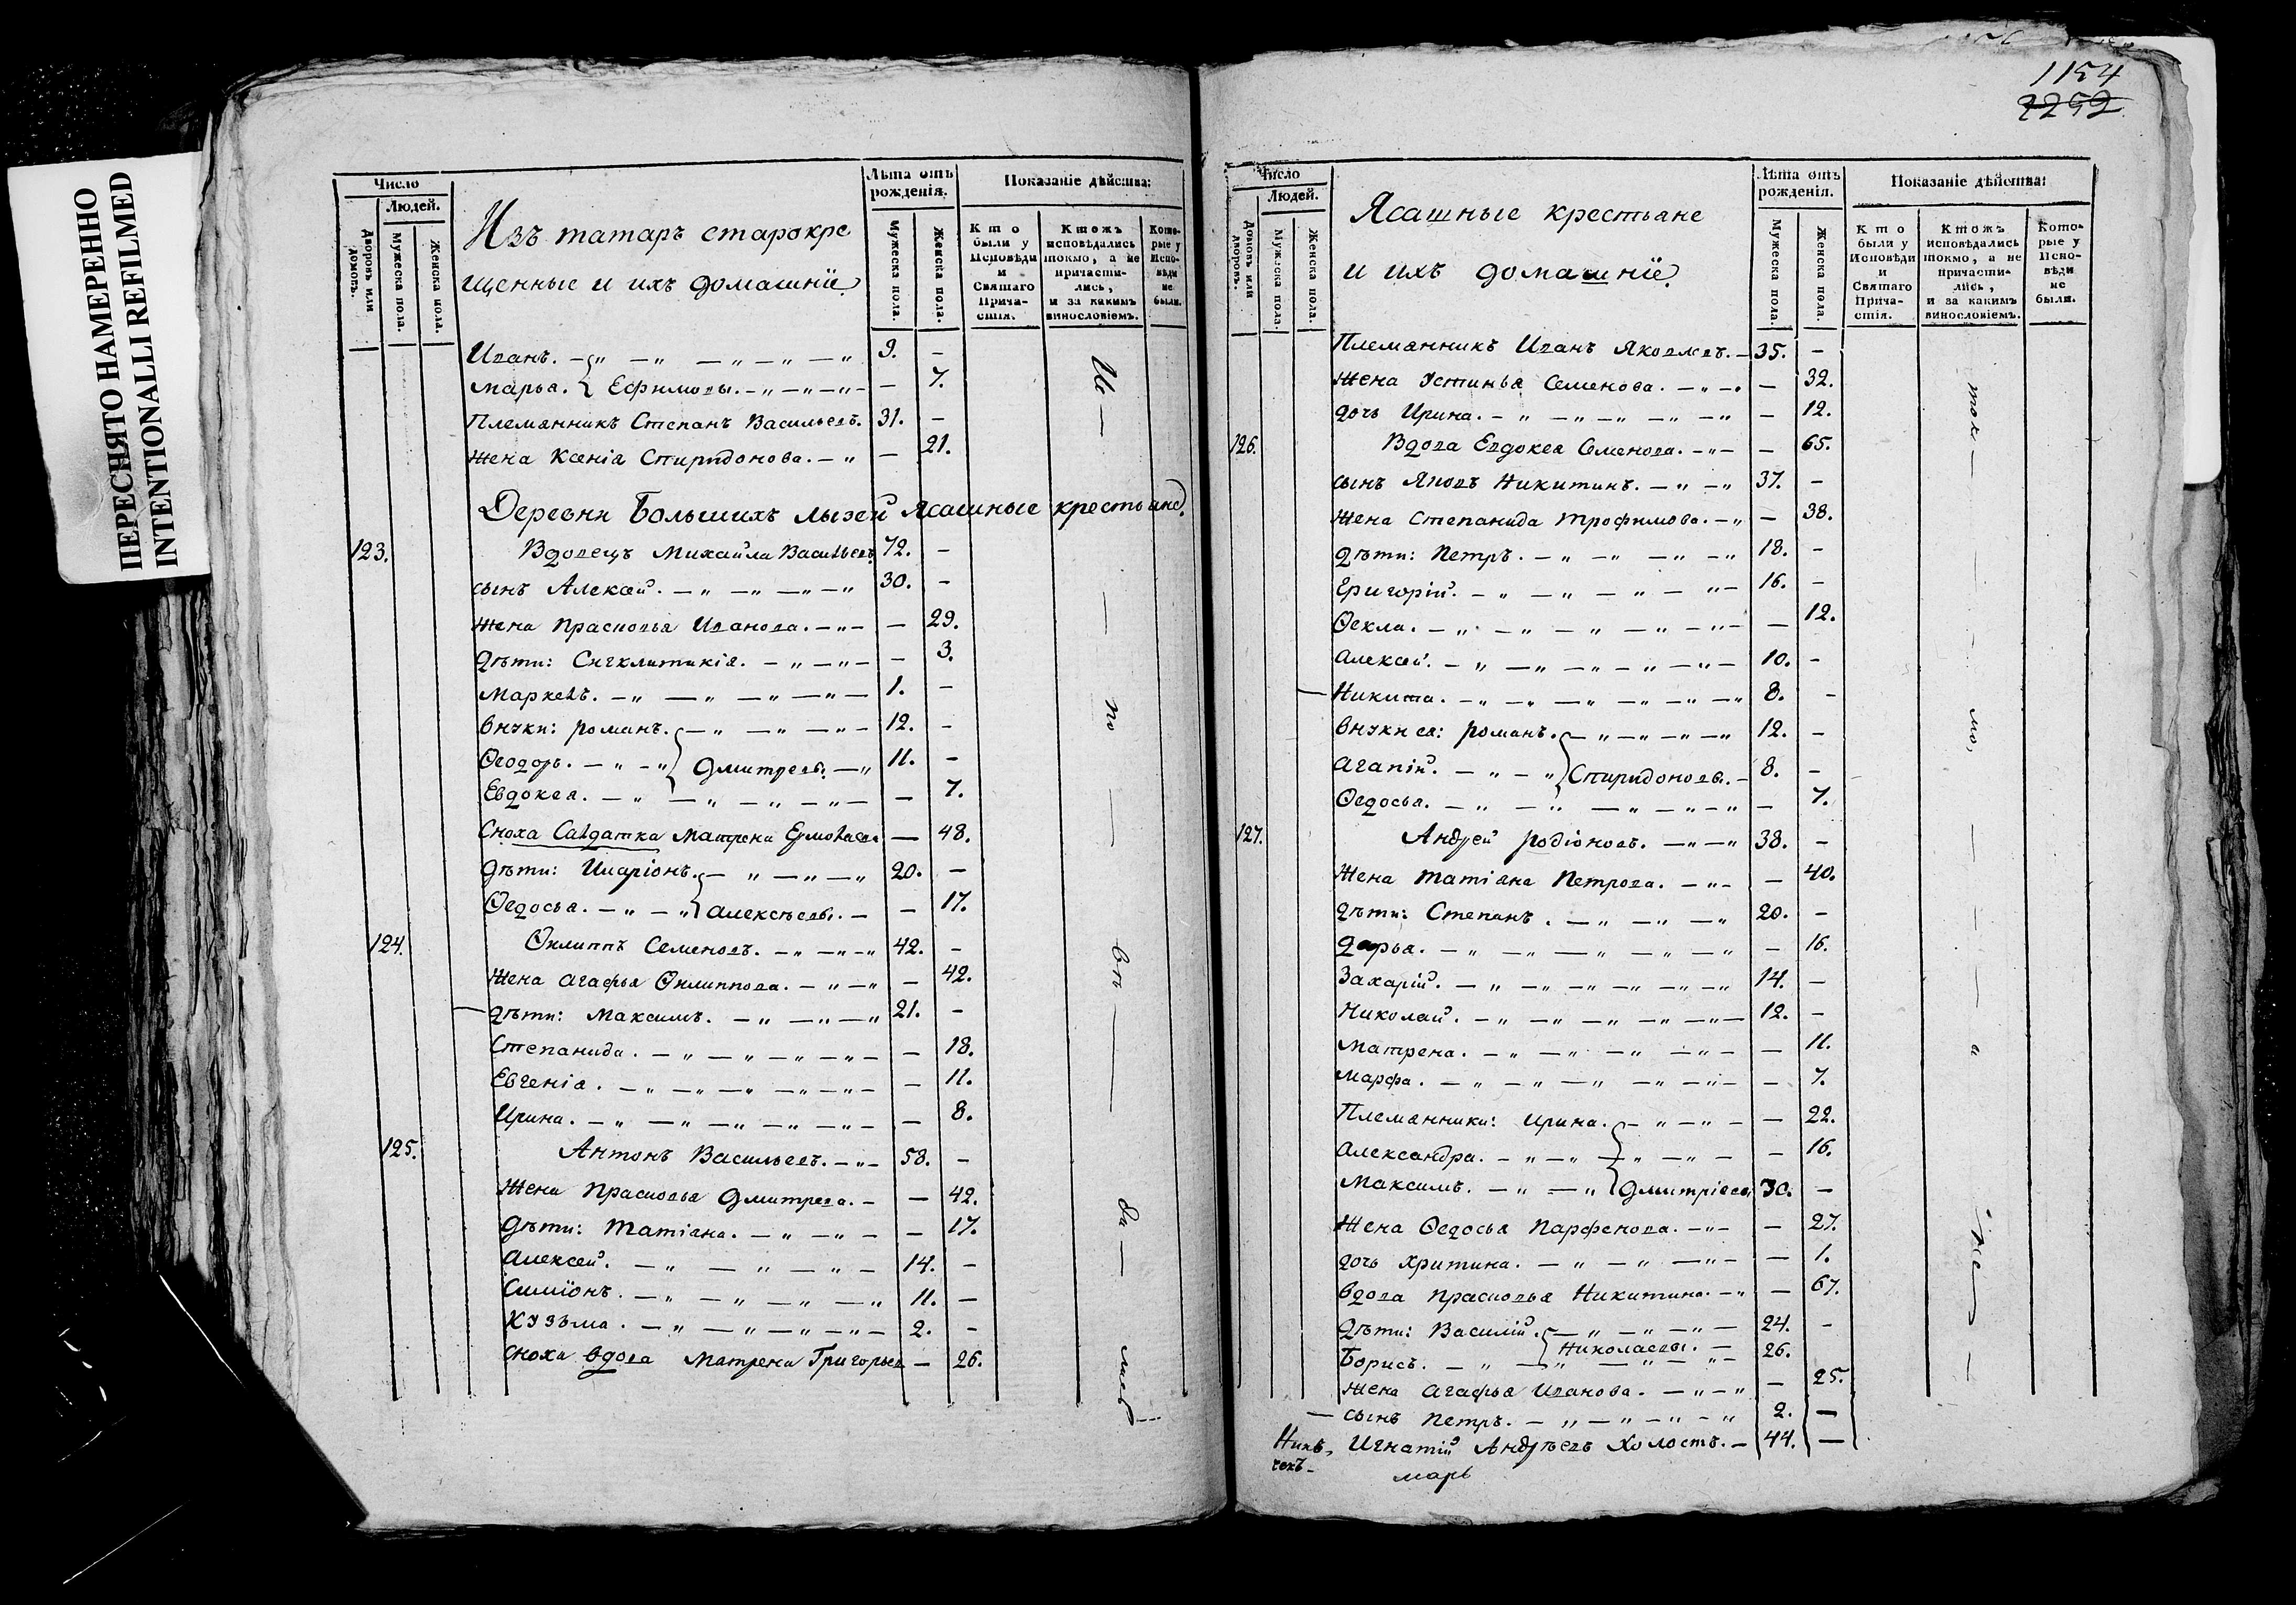 ПЕРЕСНЯТО НАМЕРЕННО
INTENTIONALLI REFILMED
Число
Людей.
Дворовъ или домовъ.
Мужеска пола.
Женска пола.
Изъ татаръ старокре
щенные и ихъ домашніе
Лѣта отъ рожденія.
Мужеска пола.
Женска пола.
Показаніе дѣйства:
Кто были у Исповѣди и Святаго Причастія.
Ктожъ исповѣдались токмо, а не причастились, и за какимъ винословіемъ.
Которые у Исповѣди не были.
Иванъ. 9. –
Марья. Ефимовы. – 7.
Племянникъ Степанъ Васильевъ. 31. –
Жена Ксенія Спиридонова. – 21.
Деревни Большихъ лызей ясашные крестьяне.
123. Вдовецъ Михайла Васильевъ 72. –
сынъ Алексей. 30. –
Жена Прасковья Иванова. – 29.
дѣти: Сигклитикія. – 3.
Маркелъ. 1. –
внуки: романъ. 12. –
Ѳеодоръ. Дмитревы. 11. –
Евдокея. – 7.
Сноха Салдатка Матрена Ермолаева – 48.
дѣти: Иларіонъ. 20. –
Ѳедосья. Алексѣевы. – 17.
124. Филиппъ Семеновъ. 42. –
Жена Агафья Филиппова. – 42.
дѣти: Максимъ. 21. –
Степанида. – 18.
Евгенія. – 11.
Ирина. – 8.
125. Антонъ Васильевъ. 58. –
Жена Прасковья Дмитрева. – 42.
дѣти: Татіана. – 17.
Алексей. 14. –
Симіонъ. 11. –
Кузьма. 2. –
Сноха вдова Матрена Григорьева – 26.
И – по – вѣ – да – лись
1154
2252
Число
Людей.
Домовъ или дворовъ.
Мужеска пола.
Женска пола.
Ясашные крестьяне
и ихъ домашніе
Лѣта отъ рожденія.
Мужеска пола.
Женска пола.
Показаніе дѣйства:
Кто были у Исповѣди и Святаго Причастія.
Ктожъ исповѣдались токмо, а не причастились, и за какимъ винословіемъ.
Которые у Исповѣди не были.
Племянникъ Иванъ Яковлевъ. 35. –
Жена Устинья Семенова. – 32.
дочь Ирина. – 12.
126. Вдова Евдокея Семенова. – 65.
сынъ Яковъ Никитинъ. 37. –
Жена Степанида Трофимова. – 38.
дѣти: Петръ. 18. –
Григорій. 16. –
Ѳекла. – 12.
Алексей. 10. –
Никита. 8. –
внуки ея: романъ. 12. –
Агапій. Спиридоновы. 8. –
Ѳедосья. – 7.
127. Андрей родіоновъ. 38. –
Жена Татіана Петрова. – 40.
дѣти: Степанъ. 20. –
дарья. – 16.
Захарій. 14. –
Николай. 12. –
Матрена. – 11.
Марфа. – 7.
Племянники: Ирина. – 22.
Александра. – 16.
Максимъ. Дмитріевы 30. –
Жена Ѳедосья Парфенова. – 27.
дочь Хритина. – 1.
вдова Прасковья Никитина. – 67.
дѣти: Василій. 24. –
Борисъ. Николаевы. 26.
Жена Агафья Иванова. – 25.
сынъ Петръ. 2. –
Игнатій Андрѣевъ холостъ. 44. –
марь
ток – мо, – а